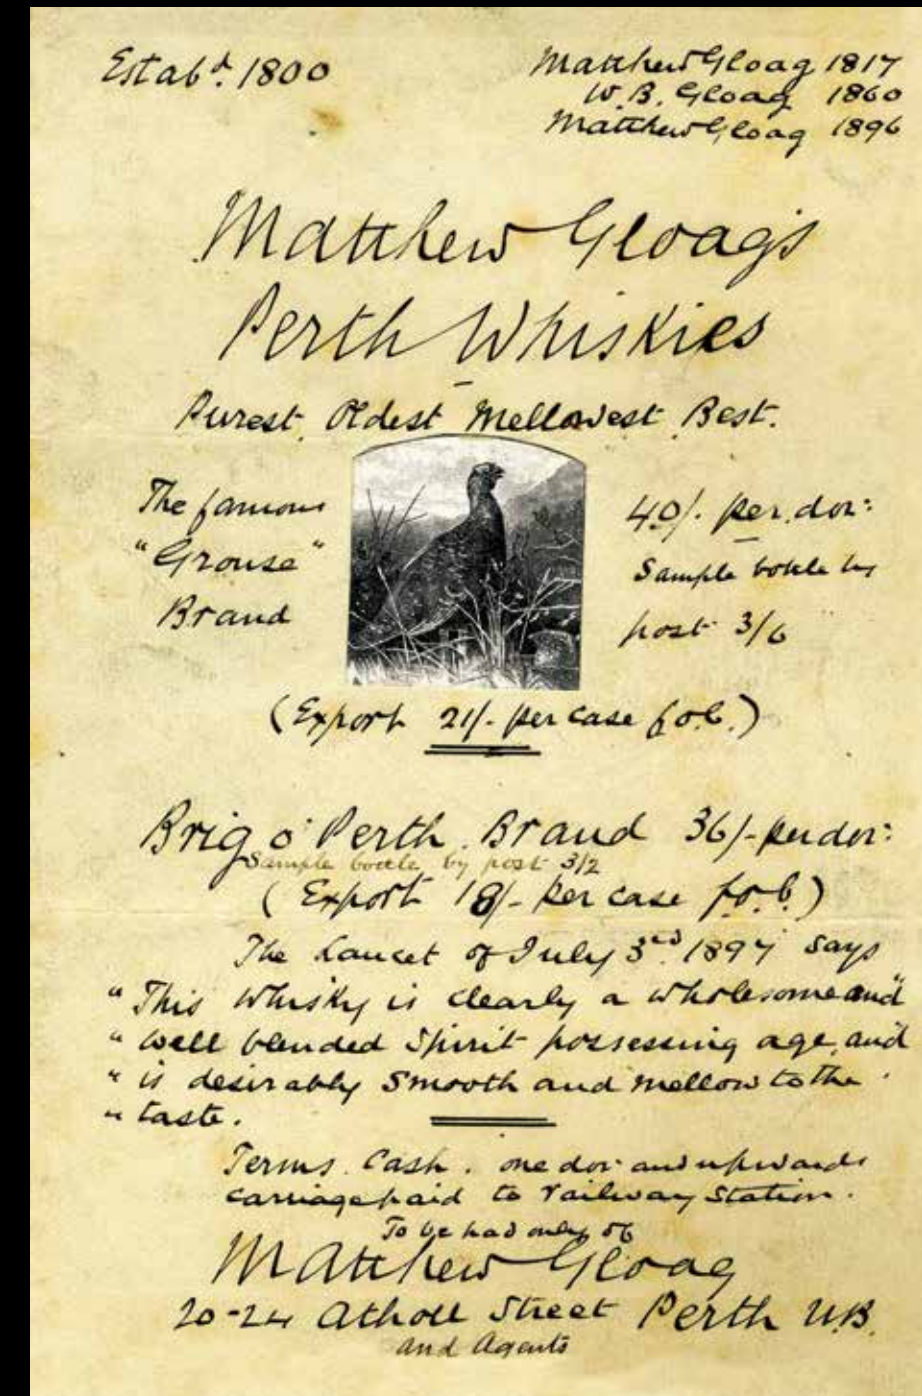 Estabd. 1800
Matthew Gloag 1817
W. B. Gloag 1860
Matthew Gloag 1896
Matthew Gloag's
Perth Whiskies
Purest, Oldest, Mellowest, Best.
The famous
"Grouse"
Brand
40/- per doz:
Sample bottle by
post 3/6
(Export 21/- per case f.o.b.)
Brig o' Perth Brand 36/- per doz:
Sample bottle by post 3/2
(Export 18/- per case f.o.b.)
The Lancet of July 3rd 1897 says
"This Whisky is clearly a wholesome and"
"well blended Spirit possessing age, and
"is desirably Smooth and mellow to the
"taste.
Terms Cash. one doz and upwards
carriage paid to railway Station.
To be had only of
Matthew Gloag
20-24 Atholl Street Perth N.B.
and Agents